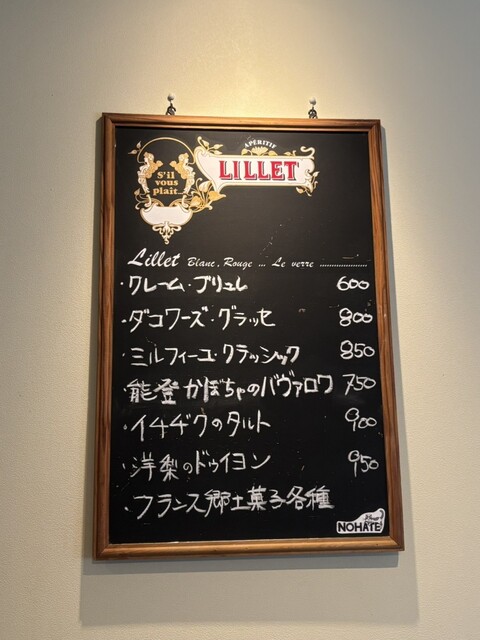 APÉRITIF
LILLET
S'il
vous
plaît...
Lillet Blanc, Rouge ... Le verre ....................
・クレーム・ブリュレ 600
・ダコワーズ・グラッセ 800
・ミルフィーユ・クラッシック 850
・能登かぼちゃのバヴァロワ 750
・イチヂクのタルト 900
・洋梨のドゥイヨン 950
・フランス郷土菓子各種
NOHATE